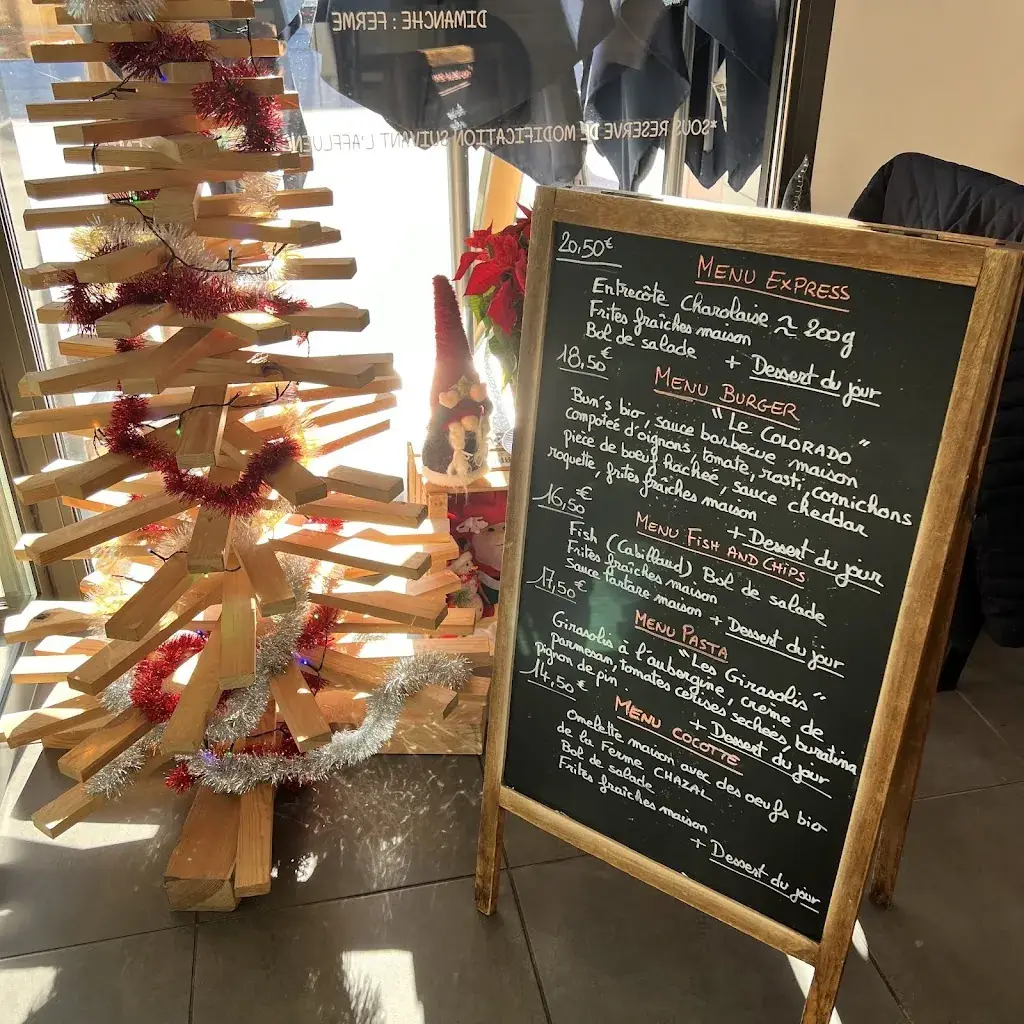 DIMANCHE : FERME
*SOUS RESERVE DE MODIFICATION SUIVANT L'AFFLUENC
20,50€
MENU EXPRESS
Entrecôte Charolaise ~ 200g
Frites fraîches maison
Bol de salade
+ Dessert du jour
18,50€
MENU BURGER
"LE COLORADO"
Bun's bio, sauce barbecue maison
compoteé d'oignons, tomate, rosti, cornichons
piece de boeuf hacheé, sauce cheddar
roquette, frites fraîches maison
+ Dessert du jour
16,50€
MENU FISH AND CHIPS
Fish (Cabillaud) Bol de salade
Frites fraîches maison
Sauce tartare maison + Dessert du jour
17,50€
MENU PASTA
"Les Girasolis"
Girasolis à l'aubergine, crème de
parmesan, tomates cerises sechées, buratina
pignon de pin
+ Dessert du jour
14,50€
MENU COCOTTE
Omelette maison avec des oeufs bio
de la Ferme CHAZAL
Bol de salade
Frites fraîches maison
+ Dessert du jour